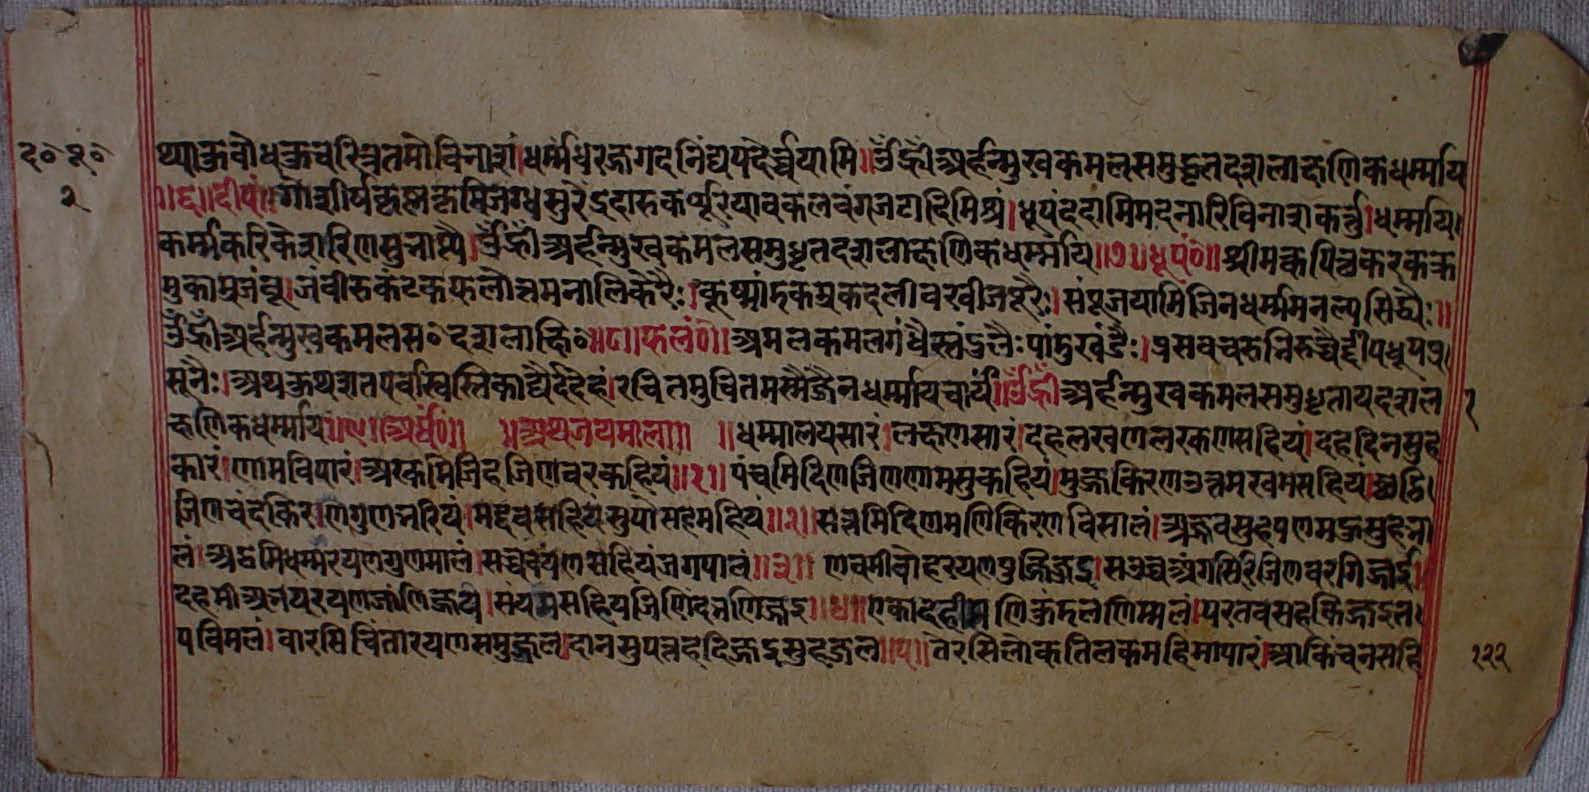 द० पू०
२
थ्याकुबोधकुचरित्रतमोविनाशं।धर्म्मंधुरह्नगदनिंद्यपदेर्च्चयामि॥ॐह्रीँअर्हन्मुखकमलसमुद्भूतदशलाक्षणिकधर्म्माय
॥६॥दीपं॥गोशीर्षकृष्णकृमिजग्धसुरेंद्रदारुकर्प्पूरयावकलवंगजटादिमिश्रं।धूपंददामिमदनारिविनाशकर्त्तुं।धर्म्माय।
कर्म्मकरिकेशरिणेसुनाप्त्यै।ॐह्रीँअर्हन्मुखकमलसमुधृतदशलाक्षणिकधर्म्माय॥७॥धूपं०॥श्रीमत्कपित्थकरकक्र
मुकाम्रजंबू।जंबीरुकंटकफलोत्तमनालिकेरैः।कूष्मांडकम्रकदलीवरबीजपूरैः।संपूजयामिजिनधर्म्ममनल्पसिद्ध्यैः॥
ॐह्रीँअर्हन्मुखकमलस०दशलाक्षि०॥८॥फलं०॥अमलकमलगंधैस्तंडुलैःपांडुखंडैः।प्रसवचरुनिरुच्चैर्द्दीपधूपप्र
सूनैः।अथकुथशतपर्वास्वस्तिकाद्यैर्ददेहं।रचितमुचितमस्मैजैनधर्म्मायचार्घं।ॐह्रीँअर्हन्मुखकमलसमुधृतायदशल
१
क्षणिकधर्म्माय॥९॥अर्घं०॥ ॥अथजयमाला॥ ॥धम्मालयसारं।लक्षणसारं।दहलखणलरकणसहियं।दहदिनसुह
कारं।णामविपारं।अरकमिजिहजिणवरकहियं॥१॥पंचमिदिणजिणणामसुकहियं।मुज्झकिरणउत्तमखमसहियं।छठ्ठि।
जिणचंदकिर।णगुणभरियं।मद्दवसहियंसुयोसहमहियं॥२॥सत्तमिदिणमणिकिरणविसालं।अज्जवसुहपणमऊसुहभा
लं।अट्ठमिधम्मरयणगुणमालं।सच्चवेयणसहियंजगपालं॥३॥णवमीवोहरयणपुज्जिज्जइ।सउच्चअंगसिरिजिणवरगिज्जई।
दहमीअभयरयणजाणिज्जय।संयमसहियजिणिंदभणिज्जइ॥४॥एकादहीमणिऊंडलणिम्मलं।परतवसहकिज्जइत।
पविमलं।वारसिचिंतारयणसमुज्जल।दानसुपत्तहदिज्जइसुहजल॥५॥तेरसिलोकतिलकमहिमापारं।आकिंचनसहि
१२२